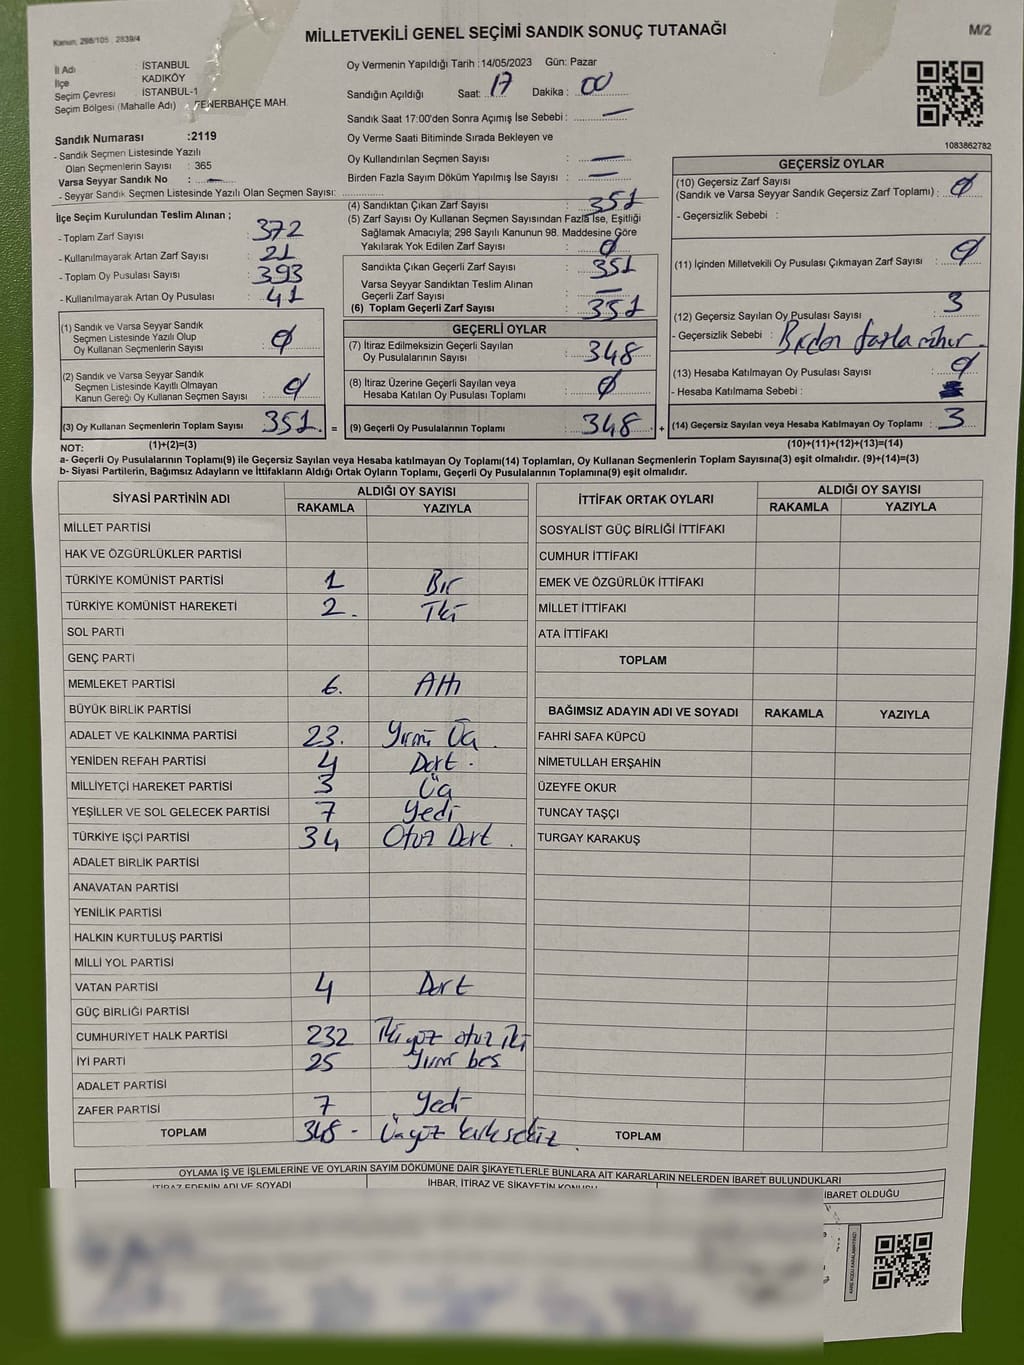 Kanun; 298/105 ; 2839/4
MİLLETVEKİLİ GENEL SEÇİMİ SANDIK SONUÇ TUTANAĞI
M/2
İl Adı : İSTANBUL
İlçe : KADIKÖY
Seçim Çevresi : İSTANBUL-1
Seçim Bölgesi (Mahalle Adı) : FENERBAHÇE MAH.
Oy Vermenin Yapıldığı Tarih :14/05/2023 Gün: Pazar
Sandığın Açıldığı Saat: 17 Dakika : 00
Sandık Saat 17:00'den Sonra Açılmış İse Sebebi : —
Oy Verme Saati Bitiminde Sırada Bekleyen ve
Oy Kullandırılan Seçmen Sayısı : —
Birden Fazla Sayım Döküm Yapılmış İse Sayısı : —
1083862782
Sandık Numarası :2119
- Sandık Seçmen Listesinde Yazılı
Olan Seçmenlerin Sayısı : 365
Varsa Seyyar Sandık No : —
- Seyyar Sandık Seçmen Listesinde Yazılı Olan Seçmen Sayısı:
İlçe Seçim Kurulundan Teslim Alınan ;
- Toplam Zarf Sayısı : 372
- Kullanılmayarak Artan Zarf Sayısı : 21
- Toplam Oy Pusulası Sayısı : 393
- Kullanılmayarak Artan Oy Pusulası : 41
(1) Sandık ve Varsa Seyyar Sandık
Seçmen Listesinde Yazılı Olup
Oy Kullanan Seçmenlerin Sayısı : 0
(2) Sandık ve Varsa Seyyar Sandık
Seçmen Listesinde Kayıtlı Olmayan
Kanun Gereği Oy Kullanan Seçmen Sayısı : 0
(3) Oy Kullanan Seçmenlerin Toplam Sayısı : 351.
(4) Sandıktan Çıkan Zarf Sayısı : 351
(5) Zarf Sayısı Oy Kullanan Seçmen Sayısından Fazla İse, Eşitliği
Sağlamak Amacıyla; 298 Sayılı Kanunun 98. Maddesine Göre
Yakılarak Yok Edilen Zarf Sayısı : 0
Sandıkta Çıkan Geçerli Zarf Sayısı : 351
Varsa Seyyar Sandıktan Teslim Alınan
Geçerli Zarf Sayısı : —
(6) Toplam Geçerli Zarf Sayısı : 351
GEÇERLİ OYLAR
(7) İtiraz Edilmeksizin Geçerli Sayılan
Oy Pusulalarının Sayısı : 348
(8) İtiraz Üzerine Geçerli Sayılan veya
Hesaba Katılan Oy Pusulası Toplamı : 0
= (9) Geçerli Oy Pusulalarının Toplamı : 348
GEÇERSİZ OYLAR
(10) Geçersiz Zarf Sayısı
(Sandık ve Varsa Seyyar Sandık Geçersiz Zarf Toplamı) : 0
- Geçersizlik Sebebi :
(11) İçinden Milletvekili Oy Pusulası Çıkmayan Zarf Sayısı : 0
(12) Geçersiz Sayılan Oy Pusulası Sayısı : 3
- Geçersizlik Sebebi : Birden fazla mühür.
(13) Hesaba Katılmayan Oy Pusulası Sayısı : 0
- Hesaba Katılmama Sebebi :
+ (14) Geçersiz Sayılan veya Hesaba Katılmayan Oy Toplamı : 3
NOT: (1)+(2)=(3)
(10)+(11)+(12)+(13)=(14)
a- Geçerli Oy Pusulalarının Toplamı(9) ile Geçersiz Sayılan veya Hesaba katılmayan Oy Toplamı(14) Toplamları, Oy Kullanan Seçmenlerin Toplam Sayısına(3) eşit olmalıdır. (9)+(14)=(3)
b- Siyasi Partilerin, Bağımsız Adayların ve İttifakların Aldığı Ortak Oyların Toplamı, Geçerli Oy Pusulalarının Toplamına(9) eşit olmalıdır.
SİYASİ PARTİNİN ADI ALDIĞI OY SAYISI
RAKAMLA YAZIYLA
MİLLET PARTİSİ
HAK VE ÖZGÜRLÜKLER PARTİSİ
TÜRKİYE KOMÜNİST PARTİSİ 1 Bir
TÜRKİYE KOMÜNİST HAREKETİ 2. İki
SOL PARTİ
GENÇ PARTİ
MEMLEKET PARTİSİ 6. Altı
BÜYÜK BİRLİK PARTİSİ
ADALET VE KALKINMA PARTİSİ 23. Yirmi Üç.
YENİDEN REFAH PARTİSİ 4 Dört.
MİLLİYETÇİ HAREKET PARTİSİ 3 Üç
YEŞİLLER VE SOL GELECEK PARTİSİ 7 Yedi
TÜRKİYE İŞÇİ PARTİSİ 34 Otuz Dört.
ADALET BİRLİK PARTİSİ
ANAVATAN PARTİSİ
YENİLİK PARTİSİ
HALKIN KURTULUŞ PARTİSİ
MİLLİ YOL PARTİSİ
VATAN PARTİSİ 4 Dört
GÜÇ BİRLİĞİ PARTİSİ
CUMHURİYET HALK PARTİSİ 232 İki yüz otuz iki
İYİ PARTİ 25 Yirmi beş
ADALET PARTİSİ
ZAFER PARTİSİ 7 Yedi
TOPLAM 348 - Üç yüz kırk sekiz.
İTTİFAK ORTAK OYLARI ALDIĞI OY SAYISI
RAKAMLA YAZIYLA
SOSYALİST GÜÇ BİRLİĞİ İTTİFAKI
CUMHUR İTTİFAKI
EMEK VE ÖZGÜRLÜK İTTİFAKI
MİLLET İTTİFAKI
ATA İTTİFAKI
TOPLAM
BAĞIMSIZ ADAYIN ADI VE SOYADI RAKAMLA YAZIYLA
FAHRİ SAFA KÜPCÜ
NİMETULLAH ERŞAHİN
ÜZEYFE OKUR
TUNCAY TAŞÇI
TURGAY KARAKUŞ
TOPLAM
OYLAMA İŞ VE İŞLEMLERİNE VE OYLARIN SAYIM DÖKÜMÜNE DAİR ŞİKAYETLERLE BUNLARA AİT KARARLARIN NELERDEN İBARET BULUNDUKLARI
İTİRAZ EDENİN ADI VE SOYADI İHBAR, İTİRAZ VE ŞİKAYETİN KONUSU İBARET OLDUĞU